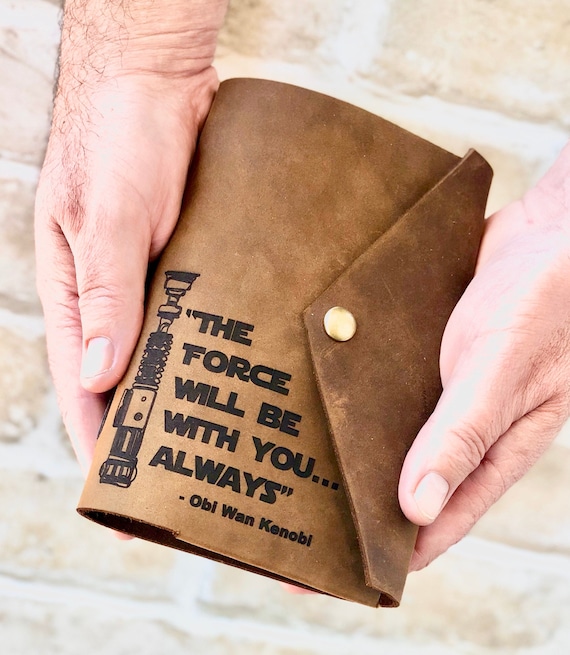 "THE
FORCE
WILL BE
WITH YOU...
ALWAYS"
- Obi Wan Kenobi